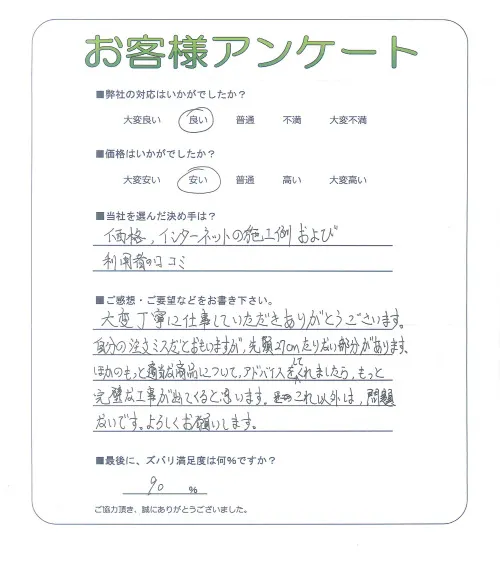 お客様アンケート
■弊社の対応はいかがでしたか?
大変良い 良い 普通 不満 大変不満
■価格はいかがでしたか?
大変安い 安い 普通 高い 大変高い
■当社を選んだ決め手は?
価格,インターネットの施工例および
利用者の口コミ
■ご感想・ご要望などをお書き下さい。
大変丁寧に仕事していただきありがとうございます。
自分の注文ミスだとおもいますが、先頭27cmたりない部分があります、
ほかのもっと適当な商品について,アドバイスをしてくれましたら,もっと
完璧な工事が出てくると思います。これ以外は,問題
ないです。よろしくお願いします。
■最後に、ズバリ満足度は何%ですか?
90 %
ご協力頂き、誠にありがとうございました。